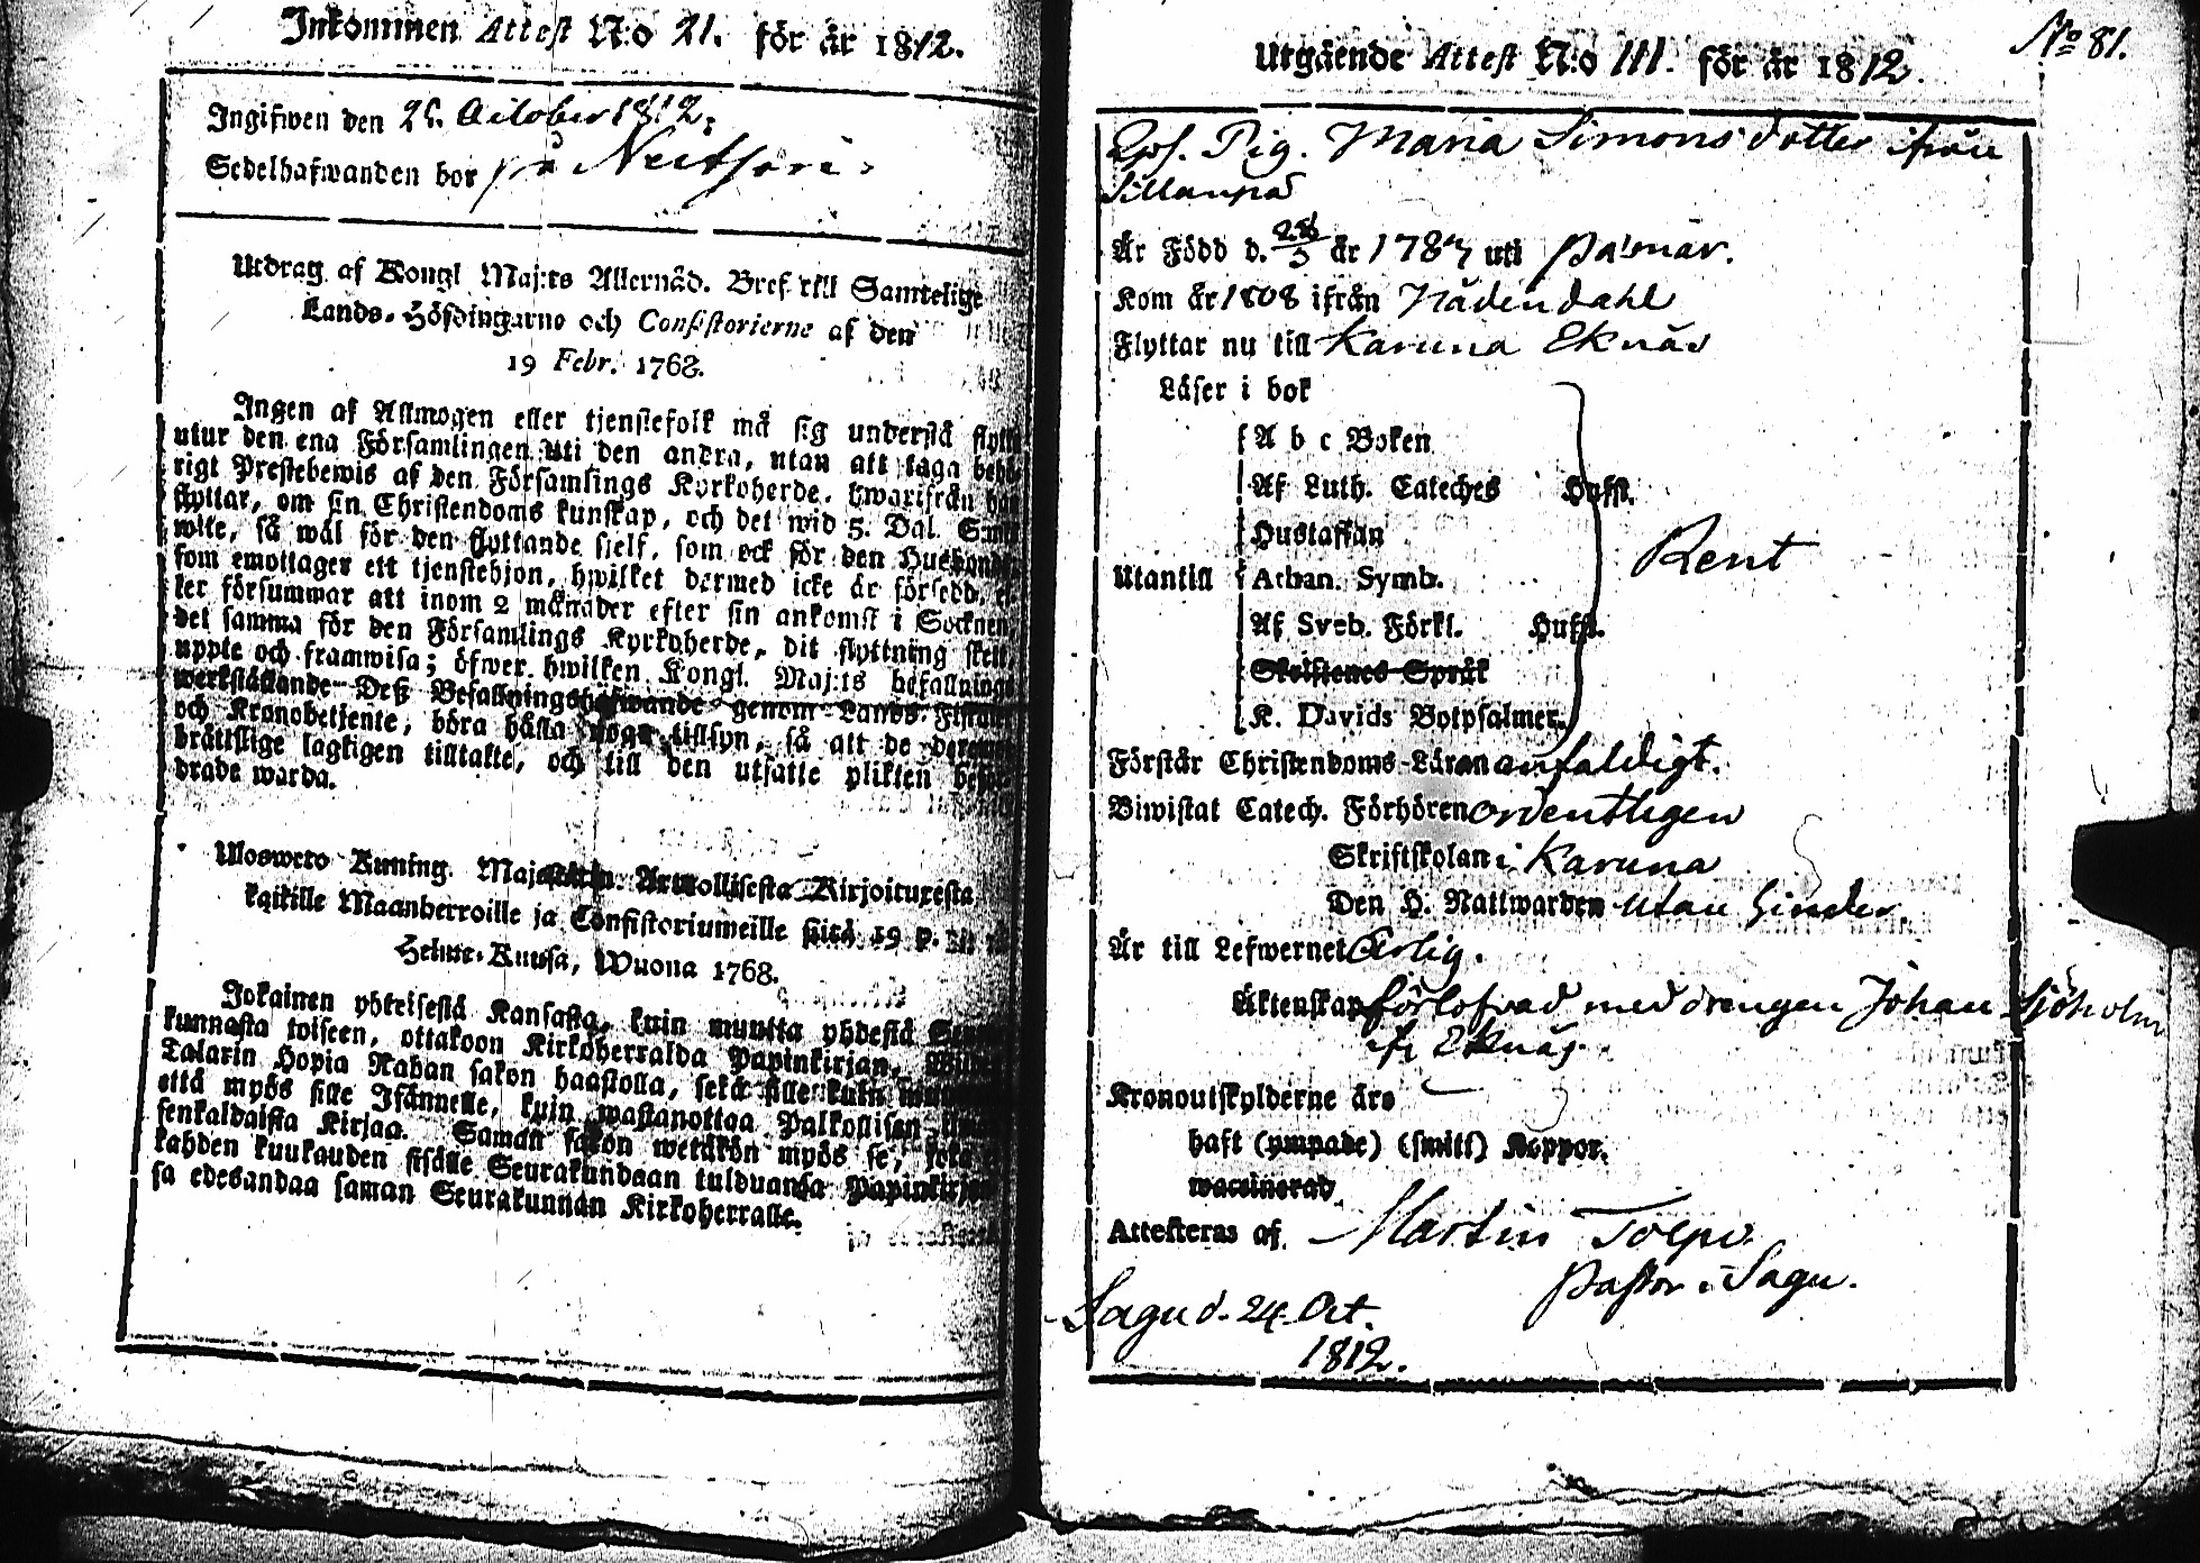 Inkommen Attest N:o 21. för år 1812.
Ingifwen den 25. October 1812.
Sedelhafwanden bor på
Utdrag af Kongl Maj:ts Allernåd. Bref till Samtelige
Lands-Höfdingarne och Consistorierne af den
19 Febr. 1768.
Ingen af Allmogen eller tjenstefolk må sig understå flytta
utur den ena Församlingen uti den andra, utan att taga behö-
rigt Prestebewis af den Församlings Kyrkoherde, hwarifrån han
flyttar, om sin Christendoms kunskap, och det wid 5. Dal. S:mts
wite, så wäl för den flyttande sjelf, som ock för den Husbonde,
som emottager ett tjenstehjon, hwilket dermed icke är försedd, el-
ler försummar att inom 2 månader efter sin ankomst i Socknen,
det samma för den Församlings Kyrkoherde, dit flyttning skett,
uppte och framwisa; öfwer hwilken Kongl. Maj:ts befallning
werkställande Deß Befallningshafwande genom Lands-Fiskaler
och Kronobetjente, böra hålla noga tillsyn, så att de deremot
bråttslige lagligen tilltalte, och till den utsatte plikten befor-
drade warda.
Uloswető Kuning. Majestetin. Armollisesta Kirjoituxesta
kaikille Maanherroille ja Consistoriumeille siitä 19 p.
Helme-Kuusa, Wuona 1768.
Jokainen yhteisestä Kansasta, kuin muutta yhdestä Seura-
kunnasta toiseen, ottakoon Kirkoherralda Papinkirjan, Wiiden
Talarin Hopia Rahan sakon haastolla, sekä sille kuin muuttaa
että myös sille Isännelle, kuin wastanottaa Palkollisen ilman
senkaldaista Kirjaa. Saman sakon wetäkön myös se, joka ei
kahden kuukauden sisälle Seurakundaan tulduansa Papinkirjan-
sa edesandaa saman Seurakunnan Kirkoherralle.
No 81.
Utgående Attest N:o 111. för år 1812.
Pig. Maria Simonsdotter ifrån
Sillanpä
Är Född d. 28/5 år 1787 uti Pa'mar.
Kom år 1808 ifrån Nådendahl
Flyttar nu till Karuna Eknäs
Läser i bok
A b c Boken
Af Luth. Cateches Hufst.
Hustaflan
Utantill Athan. Symb. Rent
Af Sveb. Förkl. Hufst.
Skriftenes Språk
K. Davids Botpsalmer.
Förstår Christendoms Läran enfaldigt.
Biwistat Catech. Förhören ordentligen
Skriftskolan i Karuna
Den H. Nattwarden utan hinder.
Är till Lefwernet ärlig.
Äktenskap förlofvad med drengen Johan Sjöholm
ifr Eknäs.
Kronoutskylderne äro
haft (ympade) (smitt) Koppor.
waccinerad
Attesteras af Martin Tolpo.
Pastor i Sagu.
Sagu d. 24. Oct.
1812.